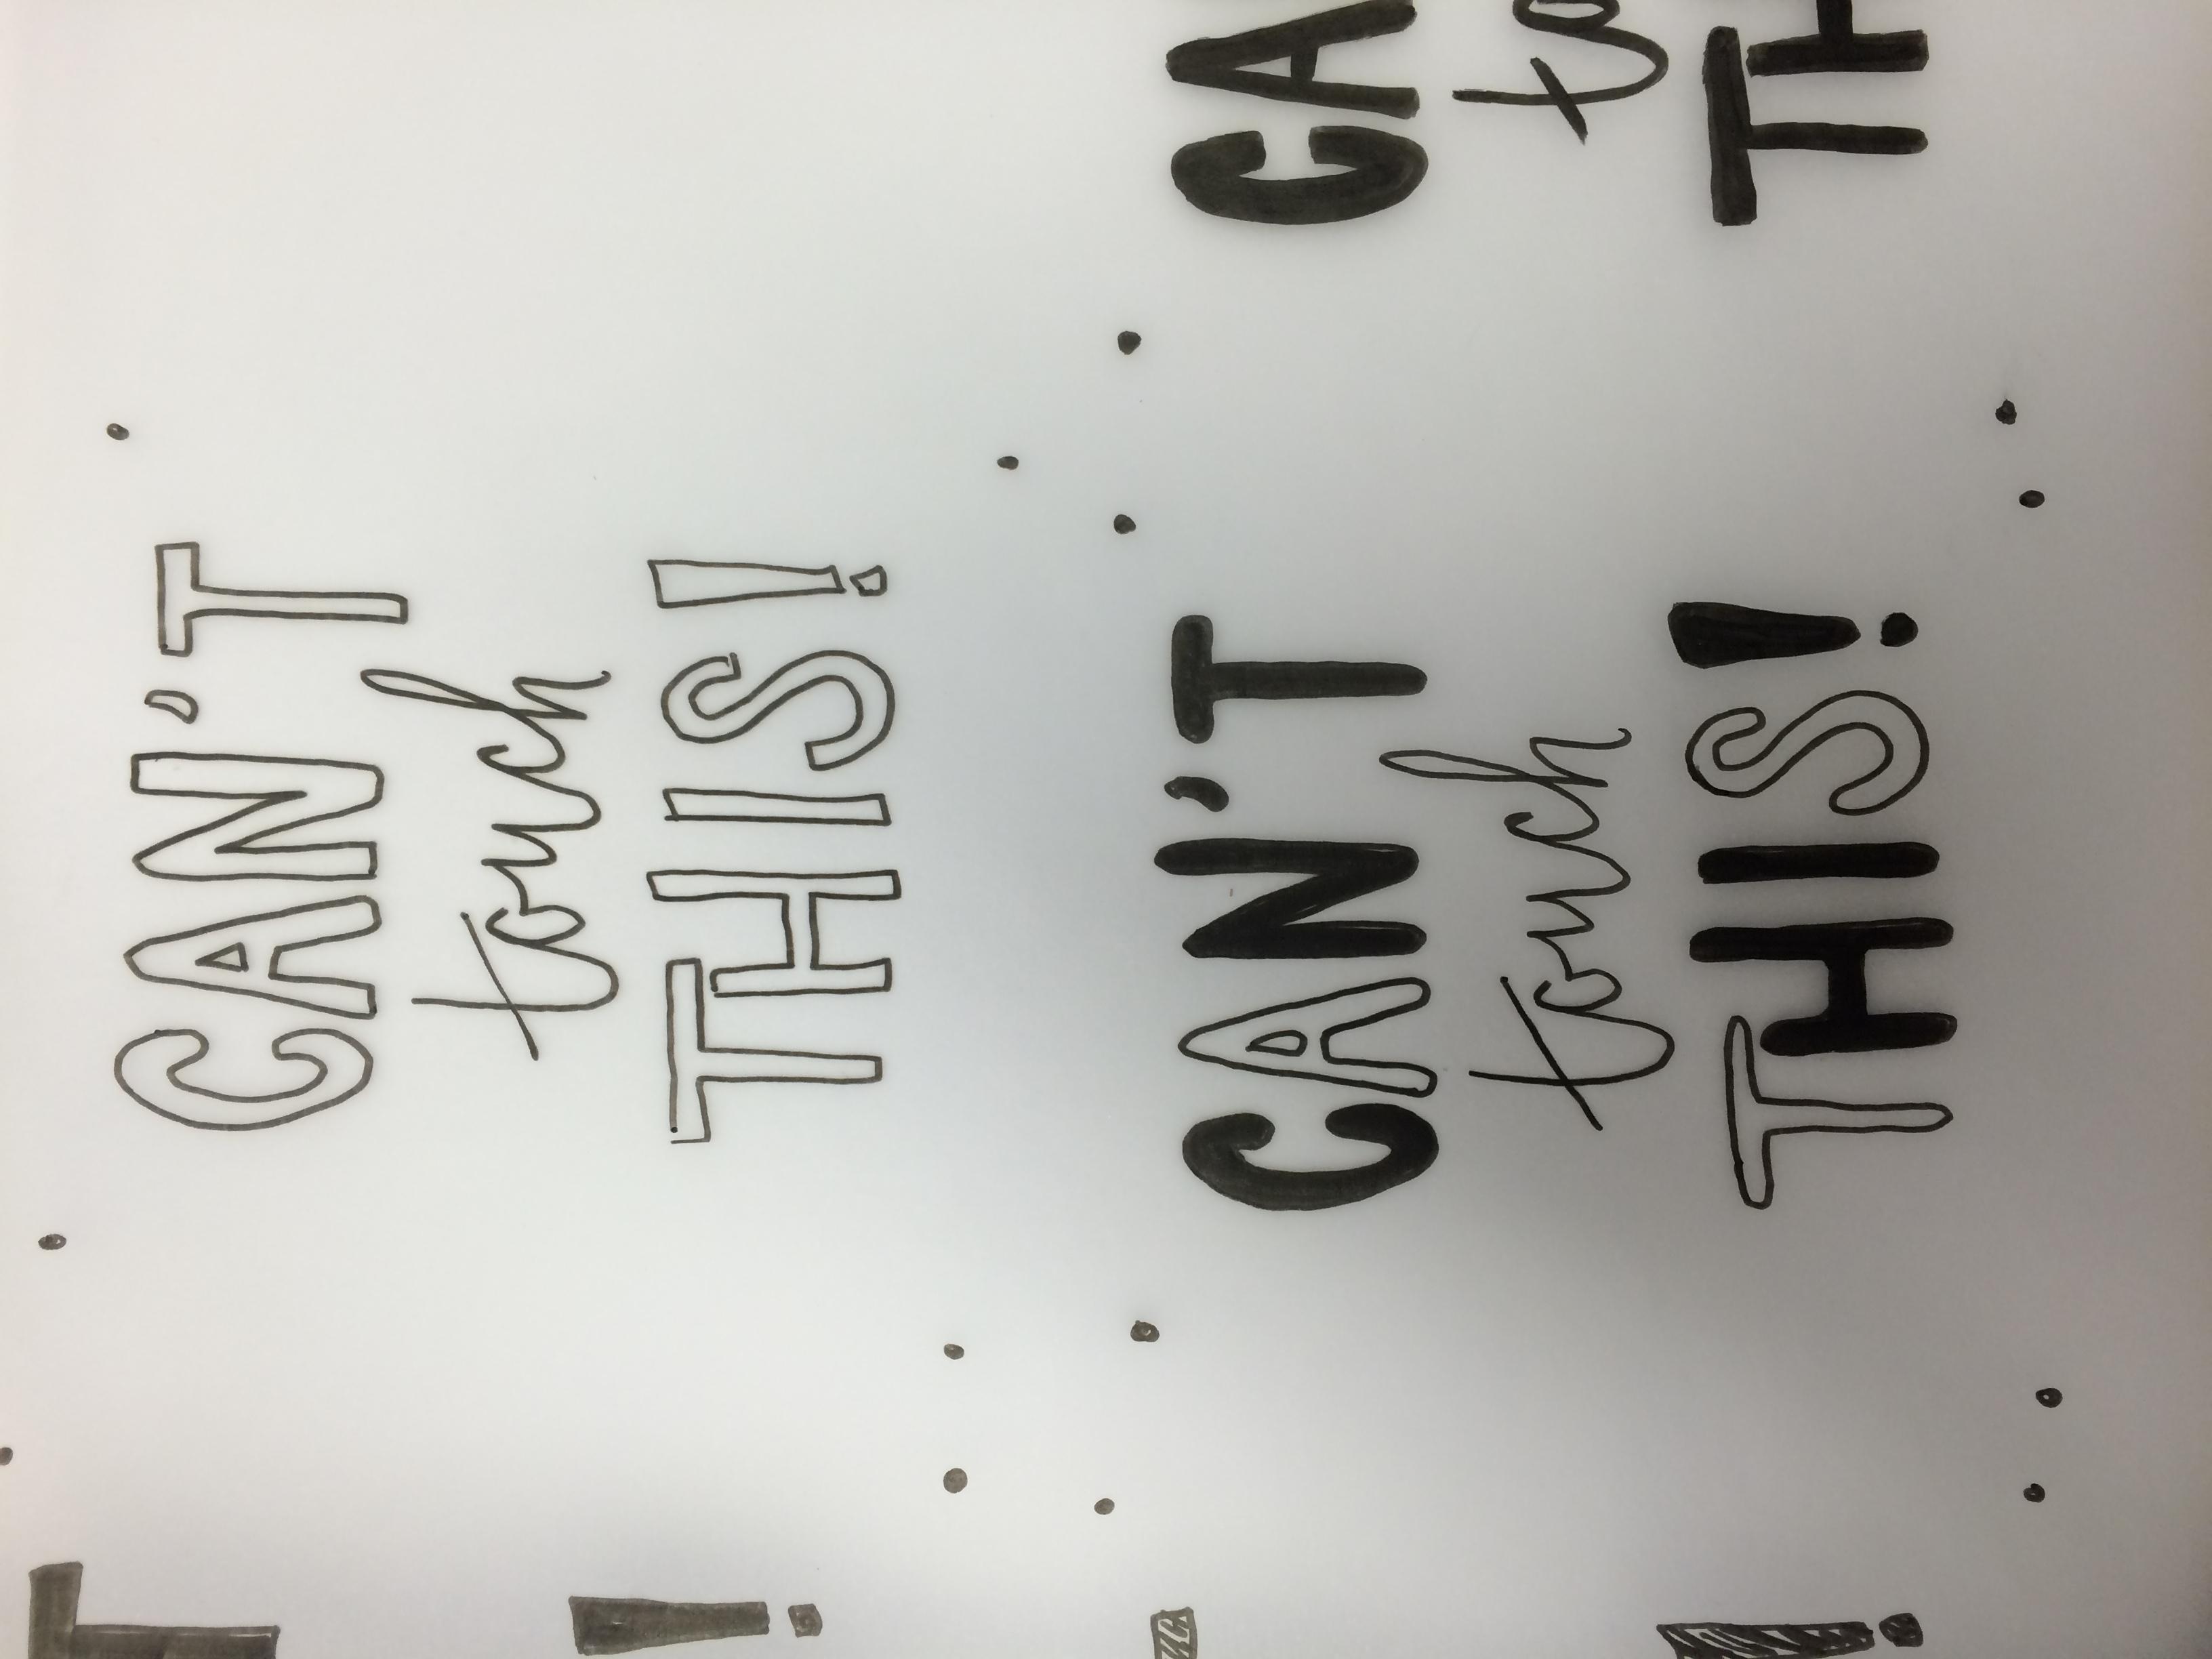 CAN'T
touch
THIS!
CAN'T
touch
THIS!
CA
to
TH
T
!
!